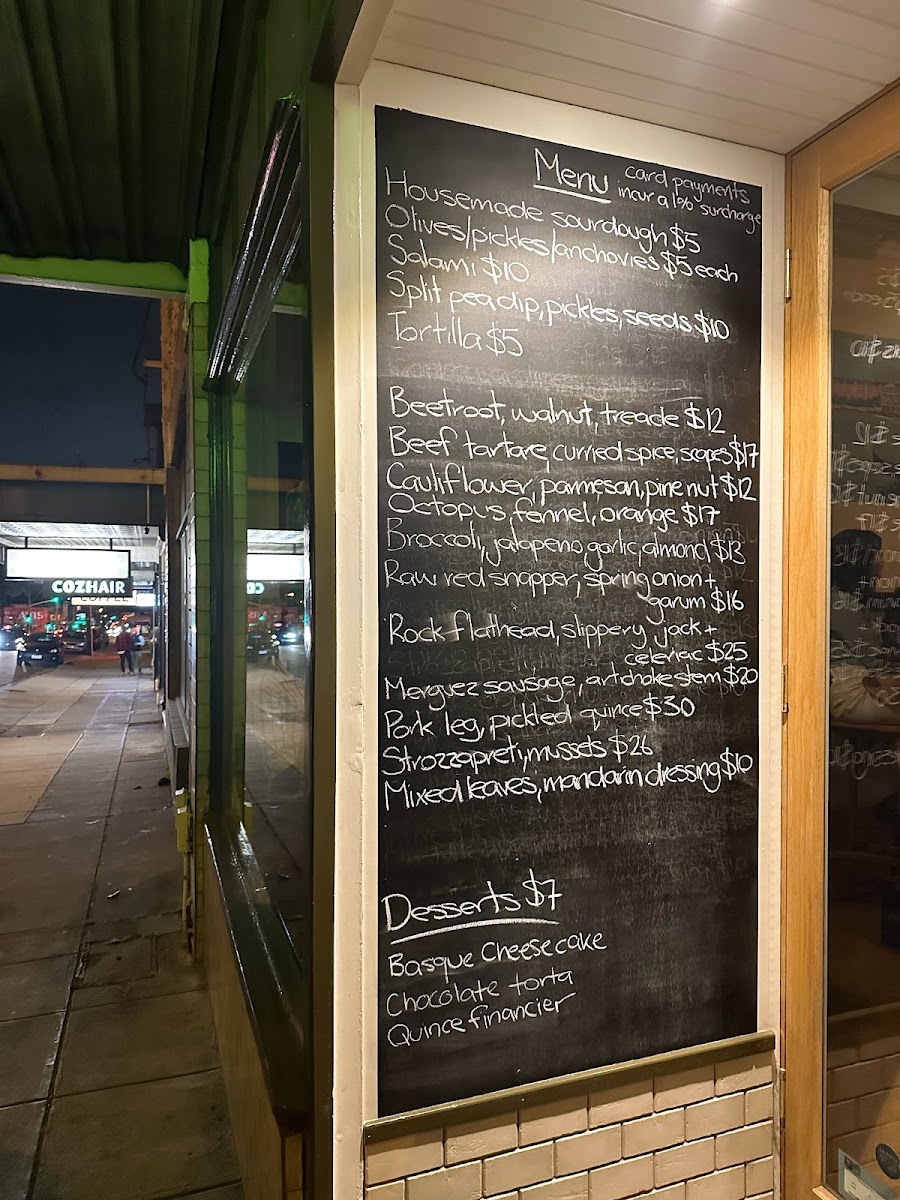 Menu
card payments
incur a 1% surcharge
Housemade sourdough $5
Olives/pickles/anchovies $5 each
Salami $10
Split pea dip, pickles, seeds $10
Tortilla $5
Beetroot, walnut, treacle $12
Beef tartare, curried spice, scapes $17
Cauliflower, parmesan, pine nut $12
Octopus, fennel, orange $17
Broccoli, jalapeno, garlic, almond $13
Raw red snapper, spring onion +
garum $16
Rock flathead, slippery jack +
celeriac $25
Merguez sausage, artichoke stem $20
Pork leg, pickled quince $30
Strozzapreti, mussels $26
Mixed leaves, mandarin dressing $10
Desserts $7
Basque Cheesecake
Chocolate torta
Quince financier
COZHAIR
COFFEE